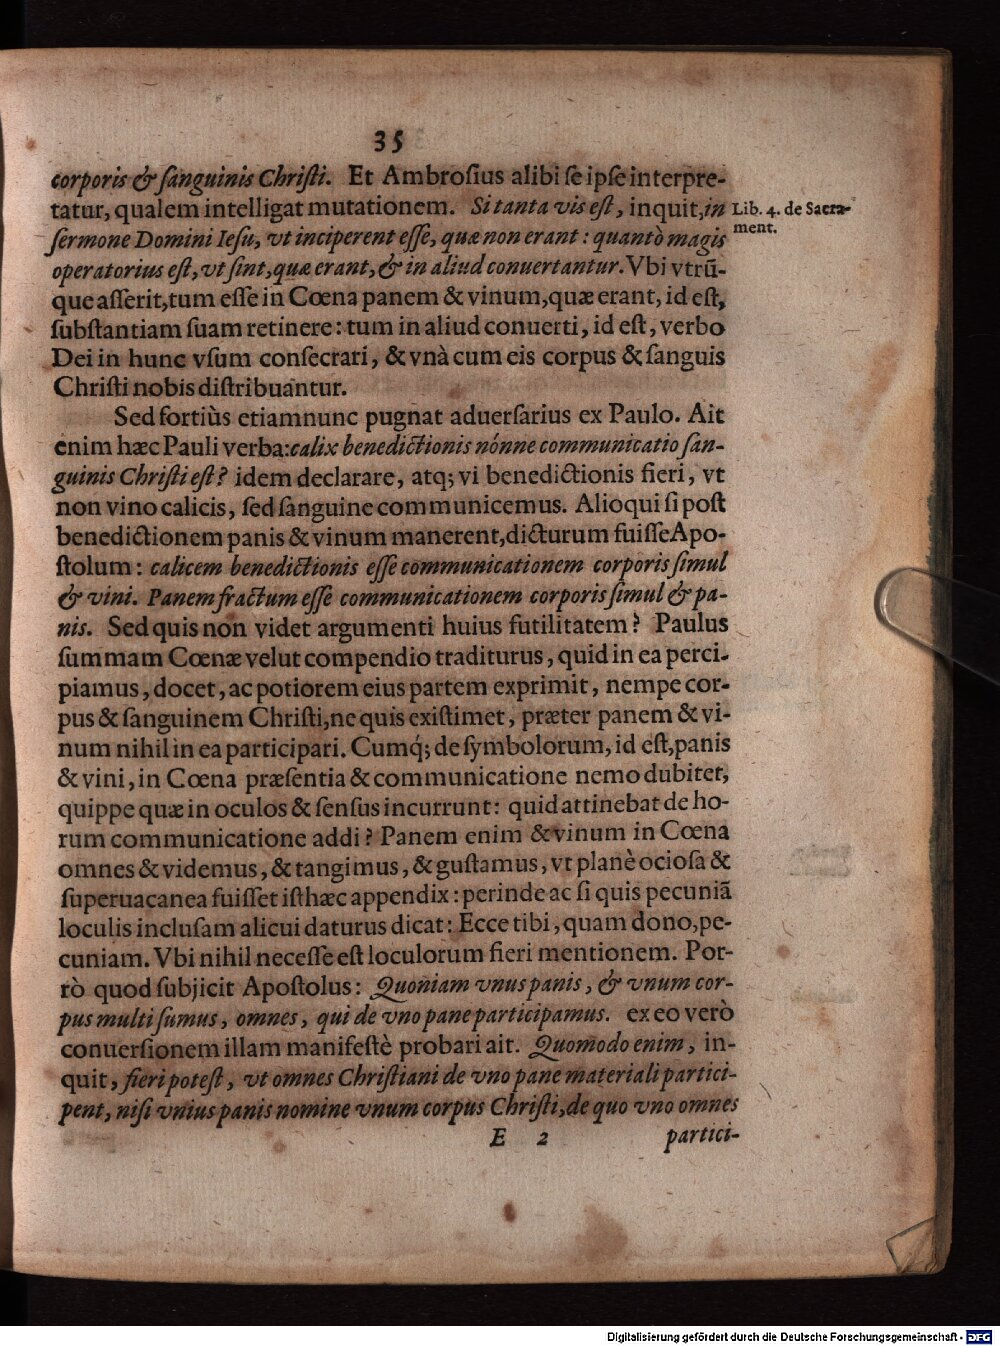 35
corporis & ſanguinis Chriſti. Et Ambroſius alibi ſe ipſe interpre-
tatur, qualem intelligat mutationem. Si tanta vis eſt, inquit, in
Lib. 4. de Sacra-
ment.
ſermone Domini Ieſu, vt inciperent eſſe, quæ non erant: quantò magis
operatorius eſt, vt ſint, quæ erant, & in aliud conuertantur. Vbi vtrũ-
que aſſerit, tum eſſe in Cœna panem & vinum, quæ erant, id eſt,
ſubſtantiam ſuam retinere: tum in aliud conuerti, id eſt, verbo
Dei in hunc vſum conſecrari, & vnà cum eis corpus & ſanguis
Chriſti nobis diſtribuantur.
Sed fortiùs etiamnunc pugnat aduerſarius ex Paulo. Ait
enim hæc Pauli verba: calix benedictionis nónne communicatio ſan-
guinis Chriſti eſt? idem declarare, atq; vi benedictionis fieri, vt
non vino calicis, ſed ſanguine communicemus. Alioqui ſi poſt
benedictionem panis & vinum manerent, dicturum fuiſſe Apo-
ſtolum: calicem benedictionis eſſe communicationem corporis ſimul
& vini. Panem fractum eſſe communicationem corporis ſimul & pa-
nis. Sed quis non videt argumenti huius futilitatem? Paulus
ſummam Cœnæ velut compendio traditurus, quid in ea perci-
piamus, docet, ac potiorem eius partem exprimit, nempe cor-
pus & ſanguinem Chriſti, ne quis exiſtimet, præter panem & vi-
num nihil in ea participari. Cumq́; de ſymbolorum, id eſt, panis
& vini, in Cœna præſentia & communicatione nemo dubitet,
quippe quæ in oculos & ſenſus incurrunt: quid attinebat de ho-
rum communicatione addi? Panem enim & vinum in Cœna
omnes & videmus, & tangimus, & guſtamus, vt planè ocioſa &
ſuperuacanea fuiſſet iſthæc appendix: perinde ac ſi quis pecuniã
loculis incluſam alicui daturus dicat: Ecce tibi, quam dono, pe-
cuniam. Vbi nihil neceſſe eſt loculorum fieri mentionem. Por-
rò quod ſubjicit Apoſtolus: Quoniam vnus panis, & vnum cor-
pus multi ſumus, omnes, qui de vno pane participamus. ex eo verò
conuerſionem illam manifeſtè probari ait. Quomodo enim, in-
quit, fieri poteſt, vt omnes Chriſtiani de vno pane materiali partici-
pent, niſi vnius panis nomine vnum corpus Chriſti, de quo vno omnes
E 2 partici-
Digitalisierung gefördert durch die Deutsche Forschungsgemeinschaft - DFG